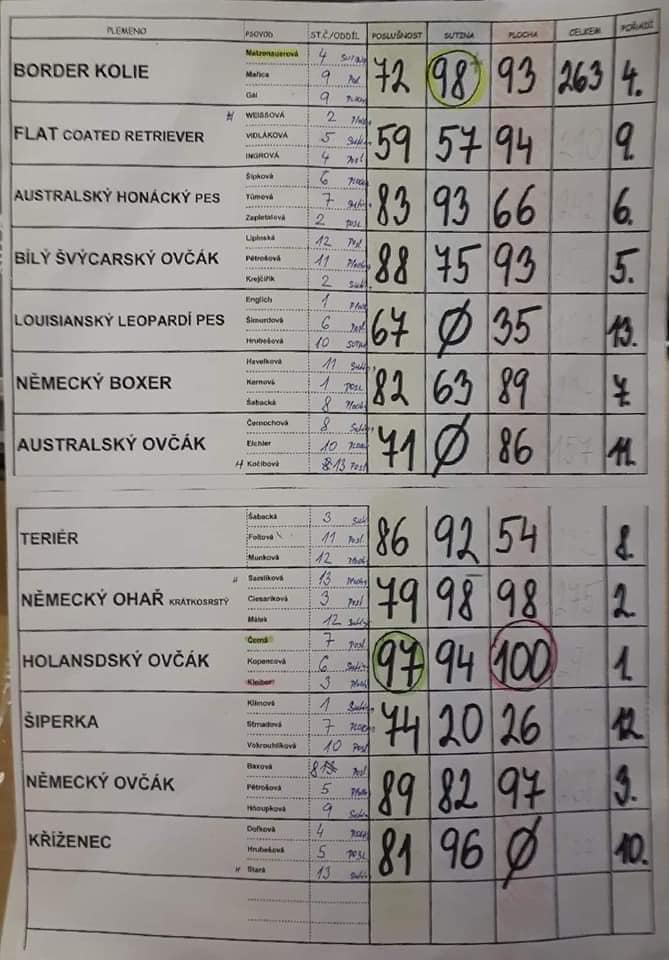 PLEMENO PSOVOD ST.Č/ODDÍL POSLUŠNOST SUTINA PLOCHA CELKEM POŘADÍ
Matzenauerová 4 sutiny
BORDER KOLIE Mařica 9 Posl. 72 98 93 263 4.
Gál 9 Plochy
H WEISSOVÁ 2 Plochy
FLAT COATED RETRIEVER VIDLÁKOVÁ 5 Sutiny 59 57 94 210 9.
INGROVÁ 4 Posl.
Šípková 6 Plochy
AUSTRALSKÝ HONÁCKÝ PES Tůmová 7 Sutiny 83 93 66 6.
Zapletalová 2 posl.
Lipinská 12 Posl.
BÍLÝ ŠVÝCARSKÝ OVČÁK Pětrošová 11 Plochy 88 75 93 5.
Krejčiřík 2 Sut.
Englich 1 Ploch
LOUISIANSKÝ LEOPARDÍ PES Šimurdová 6 Posl. 67 Ø 35 13.
Hrubešová 10 SUTIN
Havelková 11 Sutiny
NĚMECKÝ BOXER Kernová 1 POSL. 82 63 89 7
Šabacká 8 Plochy
Černochová 8 Sutiny
AUSTRALSKÝ OVČÁK Eichler 10 PLOCH 71 Ø 86 157 11.
H Kočibová 13 Posl
Šabacká 3 Sut
TERIÉR Foltová 11 Posl. 86 92 54 8.
Munková 12 Plochy
H Samlíková 13 Plochy
NĚMECKÝ OHAŘ KRÁTKOSRSTÝ Ciesariková 3 Posl 79 98 98 275 2.
Málek 12 Sutiny
Černá 7 Posl.
HOLANSDSKÝ OVČÁK Kopencová 6 Sutiny 97 94 100 1.
Kleiber 3 Plochy
Klímová 1 Sutiny
ŠIPERKA Strnadová 7 PLOCH 74 20 26 12.
Vokrouhlíková 10 Posl
Baxová Posl.
NĚMECKÝ OVČÁK Pětrošová 5 Plochy 89 82 97 3.
Hňoupková 9 Sutiny
Dofková 4 Plochy
KŘÍŽENEC Hrubešová 5 POSL 81 96 Ø 10.
H Stará 13 Sutiny